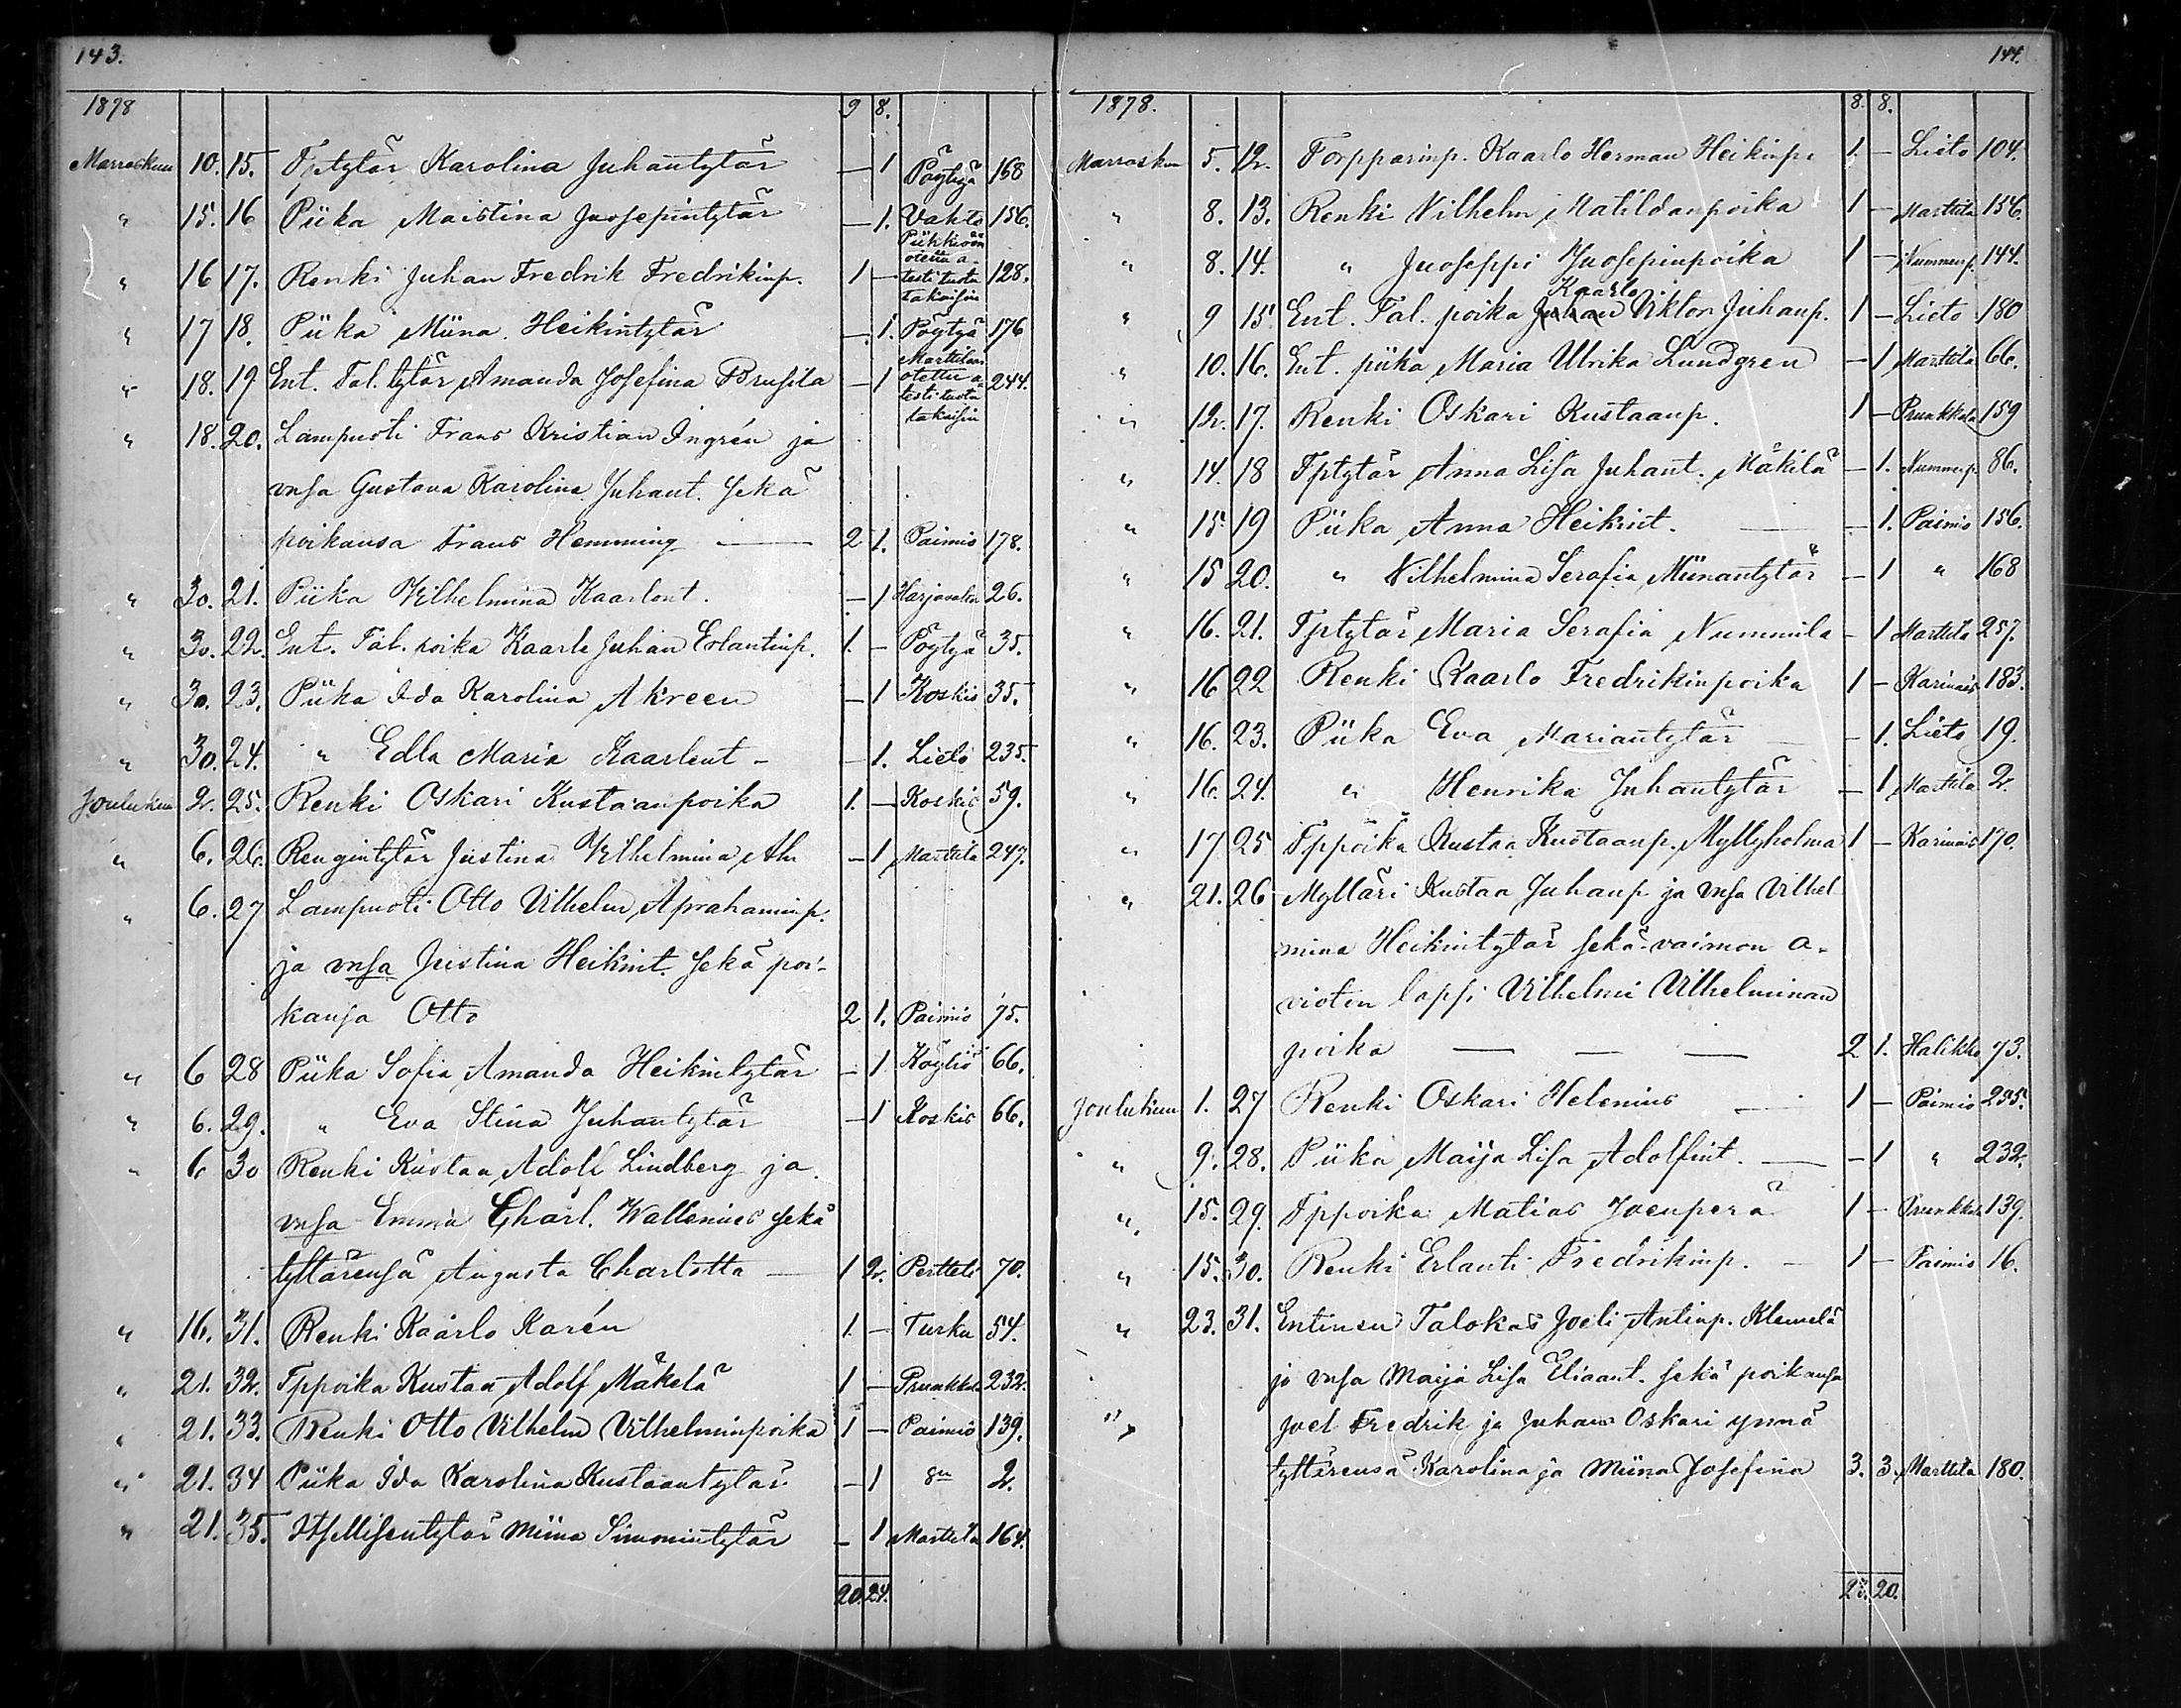 143.
1878 9 8.
Marraskuu 10. 15. Tptytär Karolina Juhantytär — 1 Pöytyä 168
" 15. 16 Piika Maistina Juosepintytär — 1. Vahto 156.
" 16 17. Renki Juhan Fredrik Fredrikinp. 1 — Piikkiöön otettu a- testi tuotu takaisin 128.
" 17 18. Piika Miina Heikintytär — 1. Pöytyä 176
" 18. 19 Ent. Tal. tytär Amanda Josefina Prusila — 1 Marttilaan otettu a- testi tuotu takaisin 244.
" 18. 20. Lampuoti Frans Kristian Ingrén ja
vnsa Gustava Karolina Juhant. sekä
poikansa Frans Hemming — 2 1. Paimio 178.
" 30. 21. Piika Vilhelmina Kaarlont. — 1 Harjavalta 26.
" 30. 22. Ent. Tal. poika Kaarlo Juhan Erlantinp. 1. — Pöytyä 35.
" 30. 23. Piika Ida Karolina Akreen — 1 Koskis 35.
" 30. 24. " Edla Maria Kaarlent — — 1. Lieto 235.
Joulukuu 2. 25. Renki Oskari Kustaanpoika 1. — Koskis 59.
" 6. 26. Rengintytär Justina Vilhelmina Ah — 1 Marttila 247.
" 6. 27 Lampuoti Otto Vilhelm Aprahaminp.
ja vnsa Justina Heikint. sekä poi-
kansa Otto 2 1. Paimio 75.
" 6 28 Piika Sofia Amanda Heikintytär — 1 Köyliö 66.
" 6. 29. " Eva Stina Juhantytär — 1 Koskis 66.
" 6 30 Renki Kustaa Adolf Lindberg ja
vnsa Emma Charl. Wallenius sekä
tyttärensä Augusta Charlotta — 1 2. Pertteli 70.
" 16. 31. Renki Kaarlo Karén 1. — Turku 54.
" 21. 32. Tppoika Kustaa Adolf Mäkelä 1 — Prunkkala 232.
" 21. 33. Renki Otto Vilhelm Vilhelminpoika 1 — Paimio 139.
" 21. 34 Piika Ida Karolina Kustaantytär — 1 2.
" 21. 35. Itsellisentytär Miina Simonintytär — 1 Marttila 164.
20. 24.
144.
1878. 8. 8.
Marraskuu 5. 12. Torpparinp. Kaarlo Herman Heikinp. 1. — Lieto 104.
" 8. 13. Renki Vilhelm Matildanpoika 1 — Marttila 156.
" 8. 14. " Juoseppi Juosepinpoika 1 — Nummenp. 144.
Kaarlo
" 9 15. Ent. Tal. poika Juhan Viktor Juhanp. 1 — Lieto 180
" 10. 16. Ent. piika Maria Ulrika Lundgren — 1 Marttila 66.
" 12. 17. Renki Oskari Kustaanp. 1 — Prunkkala 159
" 14. 18 Tptytär Anna Lisa Juhant. Mäkilä — 1. Nummenp. 86.
" 15 19 Piika Anna Heikint. — — 1. Paimio 156.
" 15 20. " Vilhelmina Serafia Miinantytär — 1 " 168
" 16. 21. Tptytär Maria Serafia Nummila — 1 Marttila 257.
" 16 22 Renki Kaarlo Fredrikinpoika 1 — Karinais 183.
" 16. 23. Piika Eva Mariantytär — — 1. Lieto 19.
" 16. 24. " Henrika Juhantytär — 1 Marttila 2.
" 17 25 Tppoika Kustaa Kustaanp. Myllyholma 1 — Karinais 170.
" 21. 26 Mylläri Kustaa Juhanp ja vnsa Vilhel
mina Heikintytär sekä vaimon a-
violin lapsi Vilhelmi Vilhelminan
poika — — — 2 1. Halikko 73.
Joulukuu 1. 27 Renki Oskari Helenius — 1 — Paimio 235.
" 9. 28. Piika Maija Lisa Adolfint. — — 1 " 232.
" 15. 29. Tppoika Matias Joenperä 1 — Prunkkala 139.
" 15. 30. Renki Erlanti Fredrikinp. — 1 — Paimio 16.
" 23. 31. Entinen Talokas Joeli Antinp. Klemelä
ja vnsa Maija Lisa Eliaant. sekä poikansa
" Joel Fredrik ja Juhan Oskari ynnä
tyttärensä Karolina ja Miina Josefina 3. 3. Marttila 180.
20.